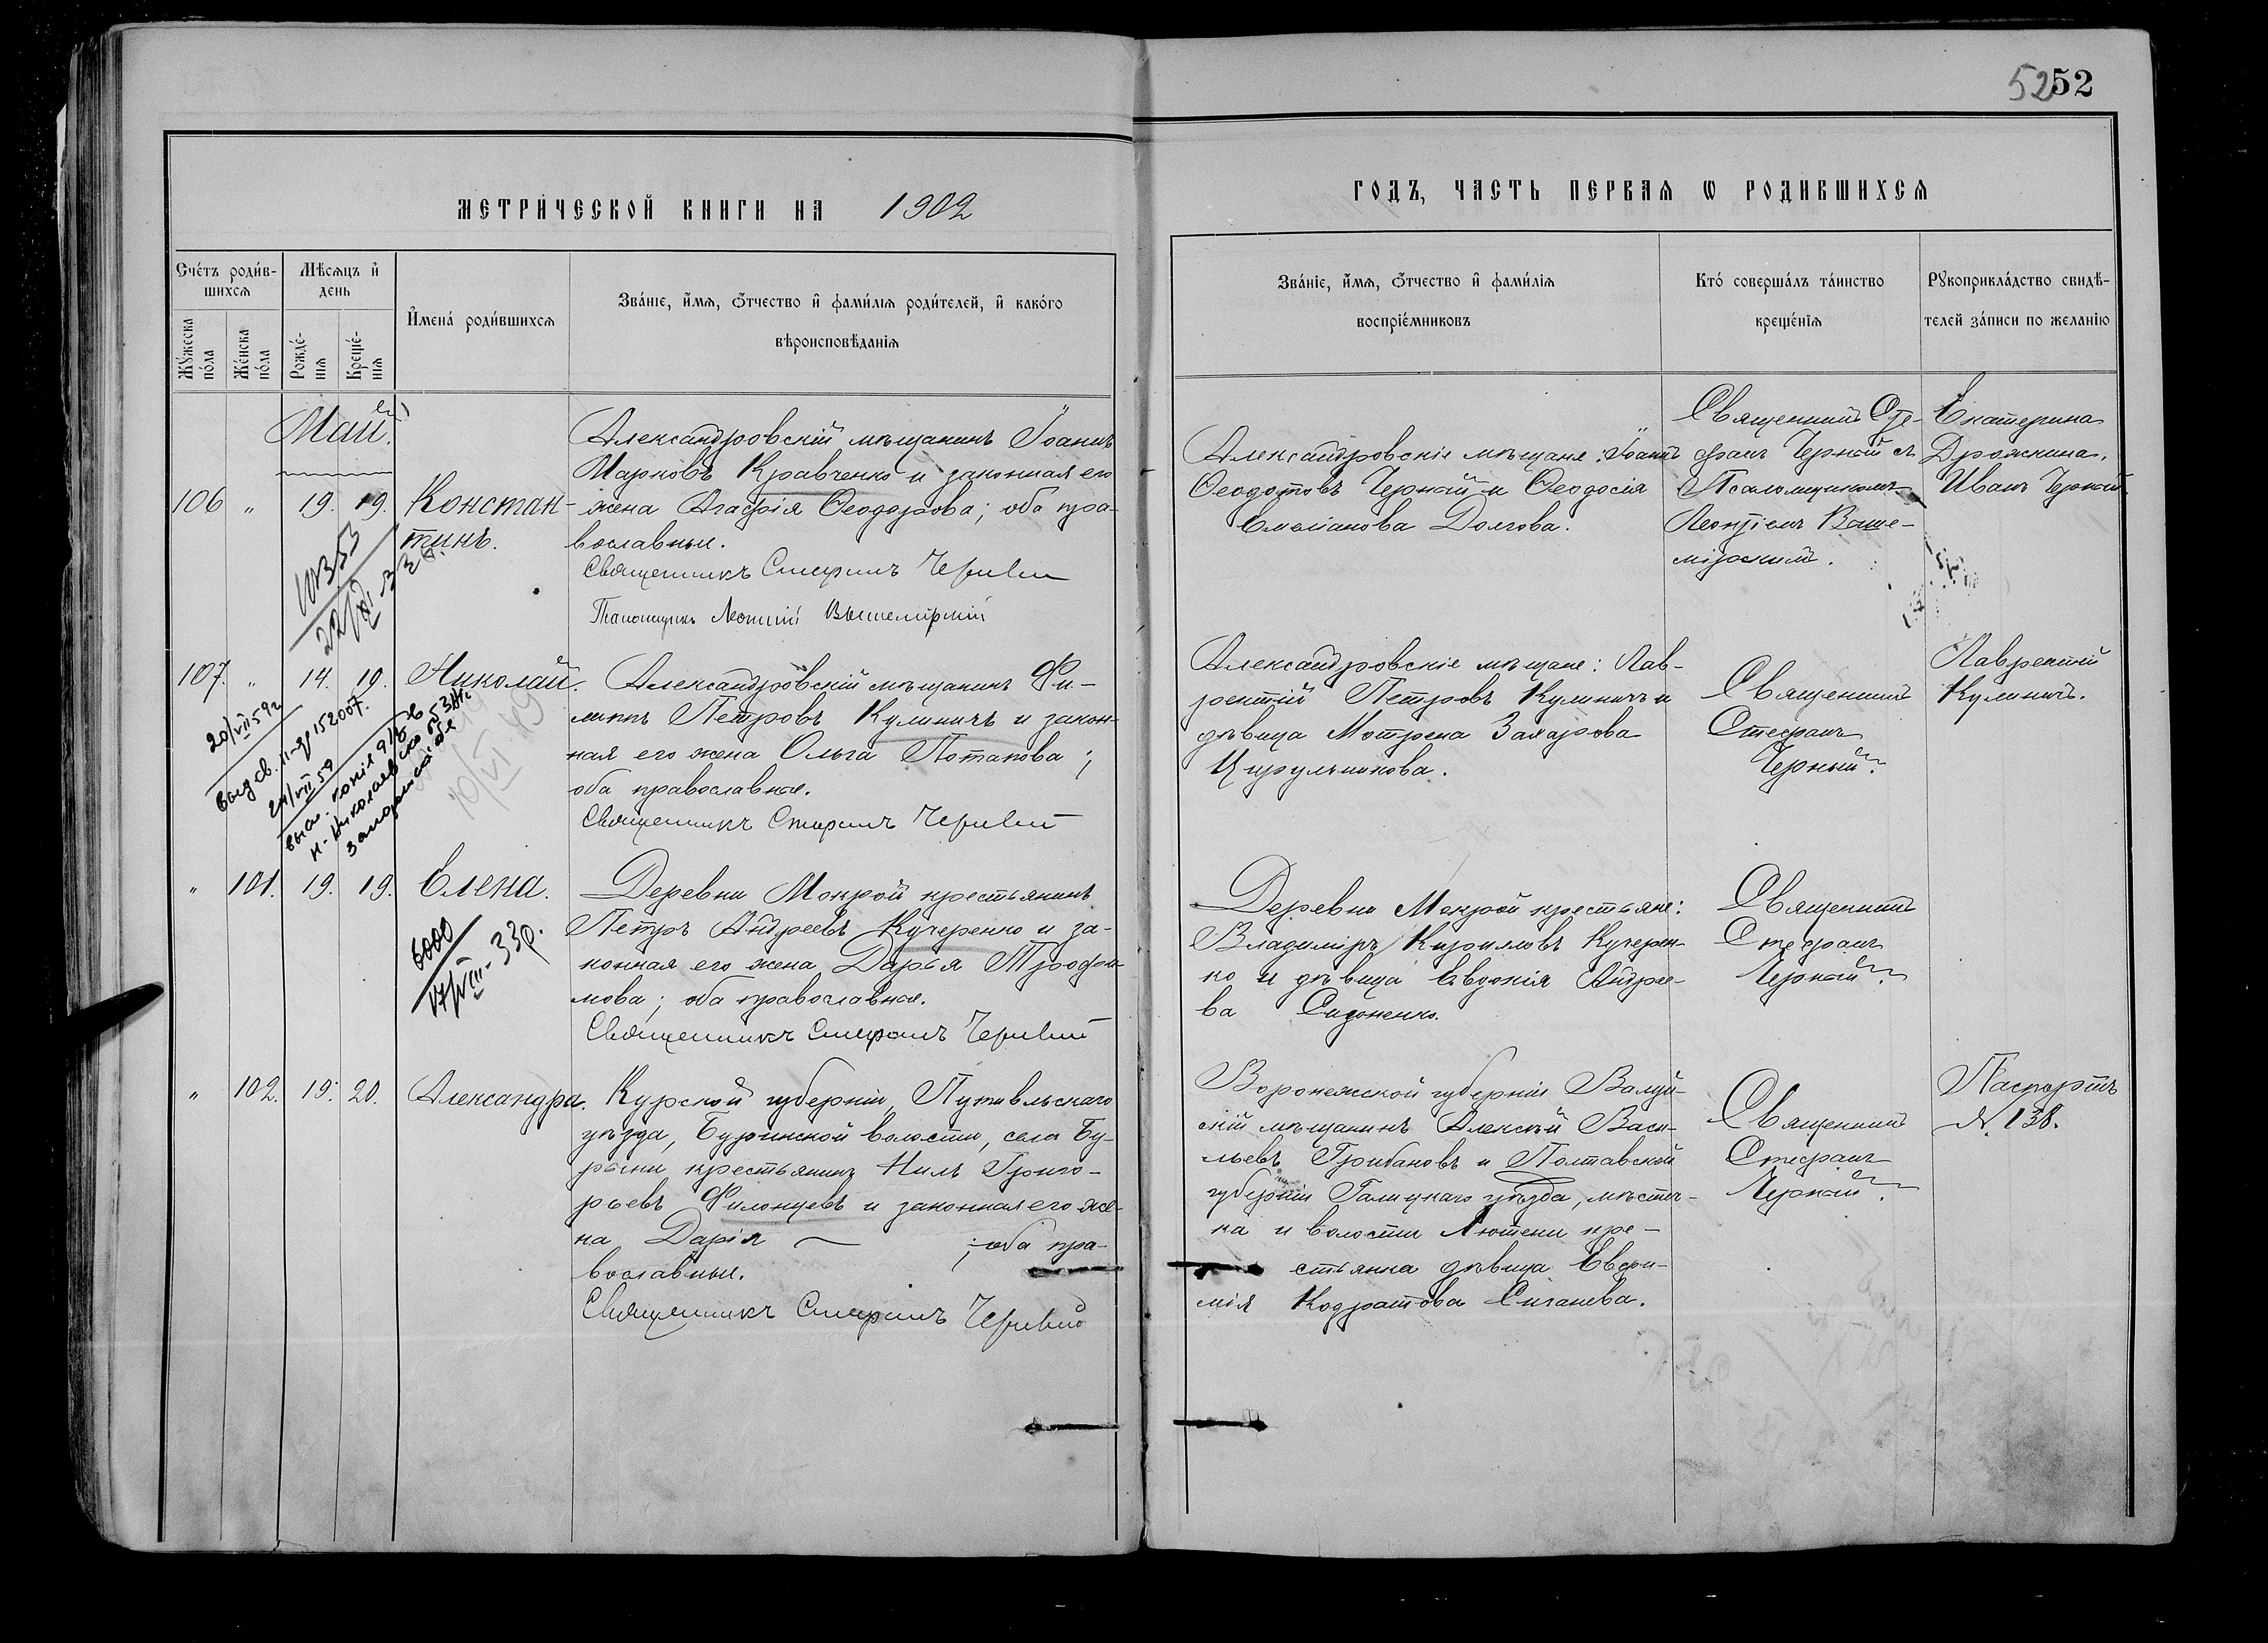 52 52
МЕТРИЧЕСКОЙ КНИГИ НА 1902
ГОДЪ, ЧАСТЬ ПЕРВАЯ Ѡ РОДИВШИХСЯ
Счетъ родив-
шихся
Мужеска
пола
Женска
пола
Мѣсяцъ и
день
Рожде-
нія
Креще-
нія
Имена родившихся
Званіе, имя, отчество и фамилія родителей, и какого
вѣроисповѣданія
Званіе, имя, отчество и фамилія
воспріемниковъ
Кто совершалъ таинство
крещенія
Рукоприкладство свидѣ-
телей записи по желанію
Май.
106 " 19. 19. Констан-
тинъ.
Александровскій мѣщанинъ Іоаннъ
Марковъ Кравченко и законная его
жена Агафія Ѳеодорова; оба пра-
вославные.
Священникъ Стефанъ Черный
Псаломщикъ Леонтій Вышемірскій
Александровскіе мѣщане: Іоаннъ
Ѳеодотовъ Черный и Ѳеодосія
Емеліанова Долгова.
Священникъ Сте-
фанъ Черный съ
Псаломщикомъ
Леонтіемъ Выше-
мірскимъ.
Екатерина
Дрожкина.
Иванъ Черный
10353
22/XI-33г.
107. " 14. 19. Николай.
Александровскій мѣщанинъ Фи-
липпъ Петровъ Кулиничъ и закон-
ная его жена Ольга Потапова;
оба православные.
Священникъ Стефанъ Черный
Александровскіе мѣщане: Лав-
рентій Петровъ Кулиничъ и
дѣвица Мотрона Захарова
Цирульникова.
Священникъ
Стефанъ
Черный.
Лаврентій
Кулиничъ.
20/VII 59г
выд св. II-яр 152007.
21/VII 59
выс. копія
Н-Николаевско
10/VI 49
" 101. 19. 19. Елена.
Деревни Мокрой крестьянинъ
Петръ Андреевъ Кучеренко и за-
конная его жена Дарья Трофи-
мова; оба православные.
Священникъ Стефанъ Черный
Деревни Мокрой крестьяне:
Владиміръ Кириловъ Кучерен-
ко и дѣвица Евдокія Андрее-
ва Сидоненко.
Священникъ
Стефанъ
Черный.
6000
17/VIII-33г.
" 102. 19. 20. Александра.
Курской губерніи, Путивльскаго
уѣзда, Бурынской волости, села Бу-
рыни крестьянинъ Нилъ Григо-
рьевъ Филонцевъ и законная его же-
на Дарія ; оба пра-
вославные.
Священникъ Стефанъ Черный
Воронежской губерніи Валуй-
скій мѣщанинъ Алексѣй Васи-
льевъ Грибановъ и Полтавской
губерніи Галицкаго уѣзда, мѣстеч-
ка и волости Лютени кре-
стьянка дѣвица Евфи-
мія Кодратова Сиганева.
Священникъ
Стефанъ
Черный.
Паспортъ
№ 138.